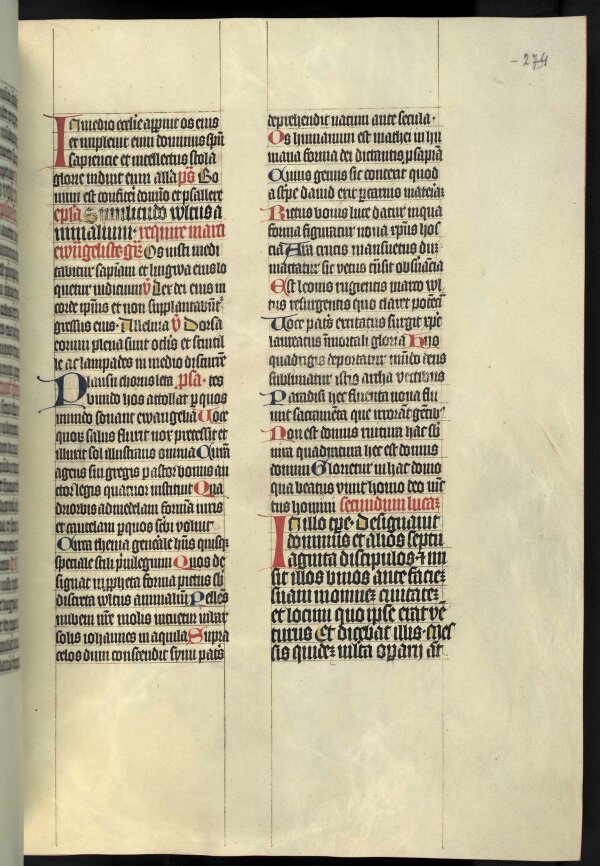 -274
In medio ecclie apperuit os eius
et impleuit eum dominus spū
sapiencie et intellectus stola
glorie induit eum all'a ps Bo
num est confiteri domīo et psallere
epsa Similitudo wltus a
nimalium · require marci
ewāgeliste gr̄ Os iusti medi
tabitur sapīam et lingwa eius lo
quetur iudicium v̄ Lex dei eius in
corde ipīus et non supplantabūt
gressus eius · Alleluia v̄ Dorsa
eorum plena sunt oclis et scintil
le ac lampades in medio discurrēt
Plausu chorus leta psa · tes
bundo hos attollat per quos
mundo sonant ewangelia Voce
quorum salus fluxit nox precessit et
illuxit sol illustrans omnia Curam
agens sui gregis pastor bonus au
ctor legis quatuor instituit Qua
driorbis ad medelam formā iuris
et cautelam per quos scribi voluit
Circa thema genērale hns quisque
speciale stili priuilegium Quos de
signat in ppheta forma pictus sub
discreta wltus animalium Pellens
nubem nre molis intuetur iubar
solis iohannes in aquila Supra
celos dum conscendit synu patris
deprehendit natum ante secula ·
Os humanum est mathei in hu
mana forma dei dictantis psapīa
Cuius genus sic contexit quod
a stirpe dauid exit per carnis materiā
Rictus bouis luce datur in qua
forma figuratur noua xpus hos
tia Ara crucis mansuetus Hic
mactatur sic vetus transit obseruācia
Est leonis rugientis marco wl
tus resurgentis quo claret potēcia
Voce patris excitatus surgit xpc
laureatus immortali gloria Hijs
quadrigis deportatur mundo deus
sublimatur istis archa vectibus
Paradisi hec fluenta noua flu
unt sacramēta que irrorāt gentibus
Non est domus ruitura hac sub
nixa quadratura hec est domus
domini Glorietur in hac domo
qua beatus viuit homo deo iunc
tus homini secundum lucā
In illo tpe Designauit
dominus et alios septu
aginta discipulos et mi
sit illos binos ante faciem
suam in omnem ciuitatem
et locum quo ipse erat vē
turus Et dicebat illis · Mes
sis quidem multa operarij aūt